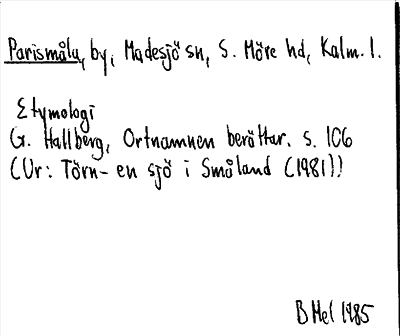 Parismåla, by, Madesjö sn, S. Möre hd, Kalm. l.
Etymologi
G. Hallberg, Ortnamnen berättar. s. 106
(Ur: Törn- en sjö i Småland (1981))
B Hel 1985